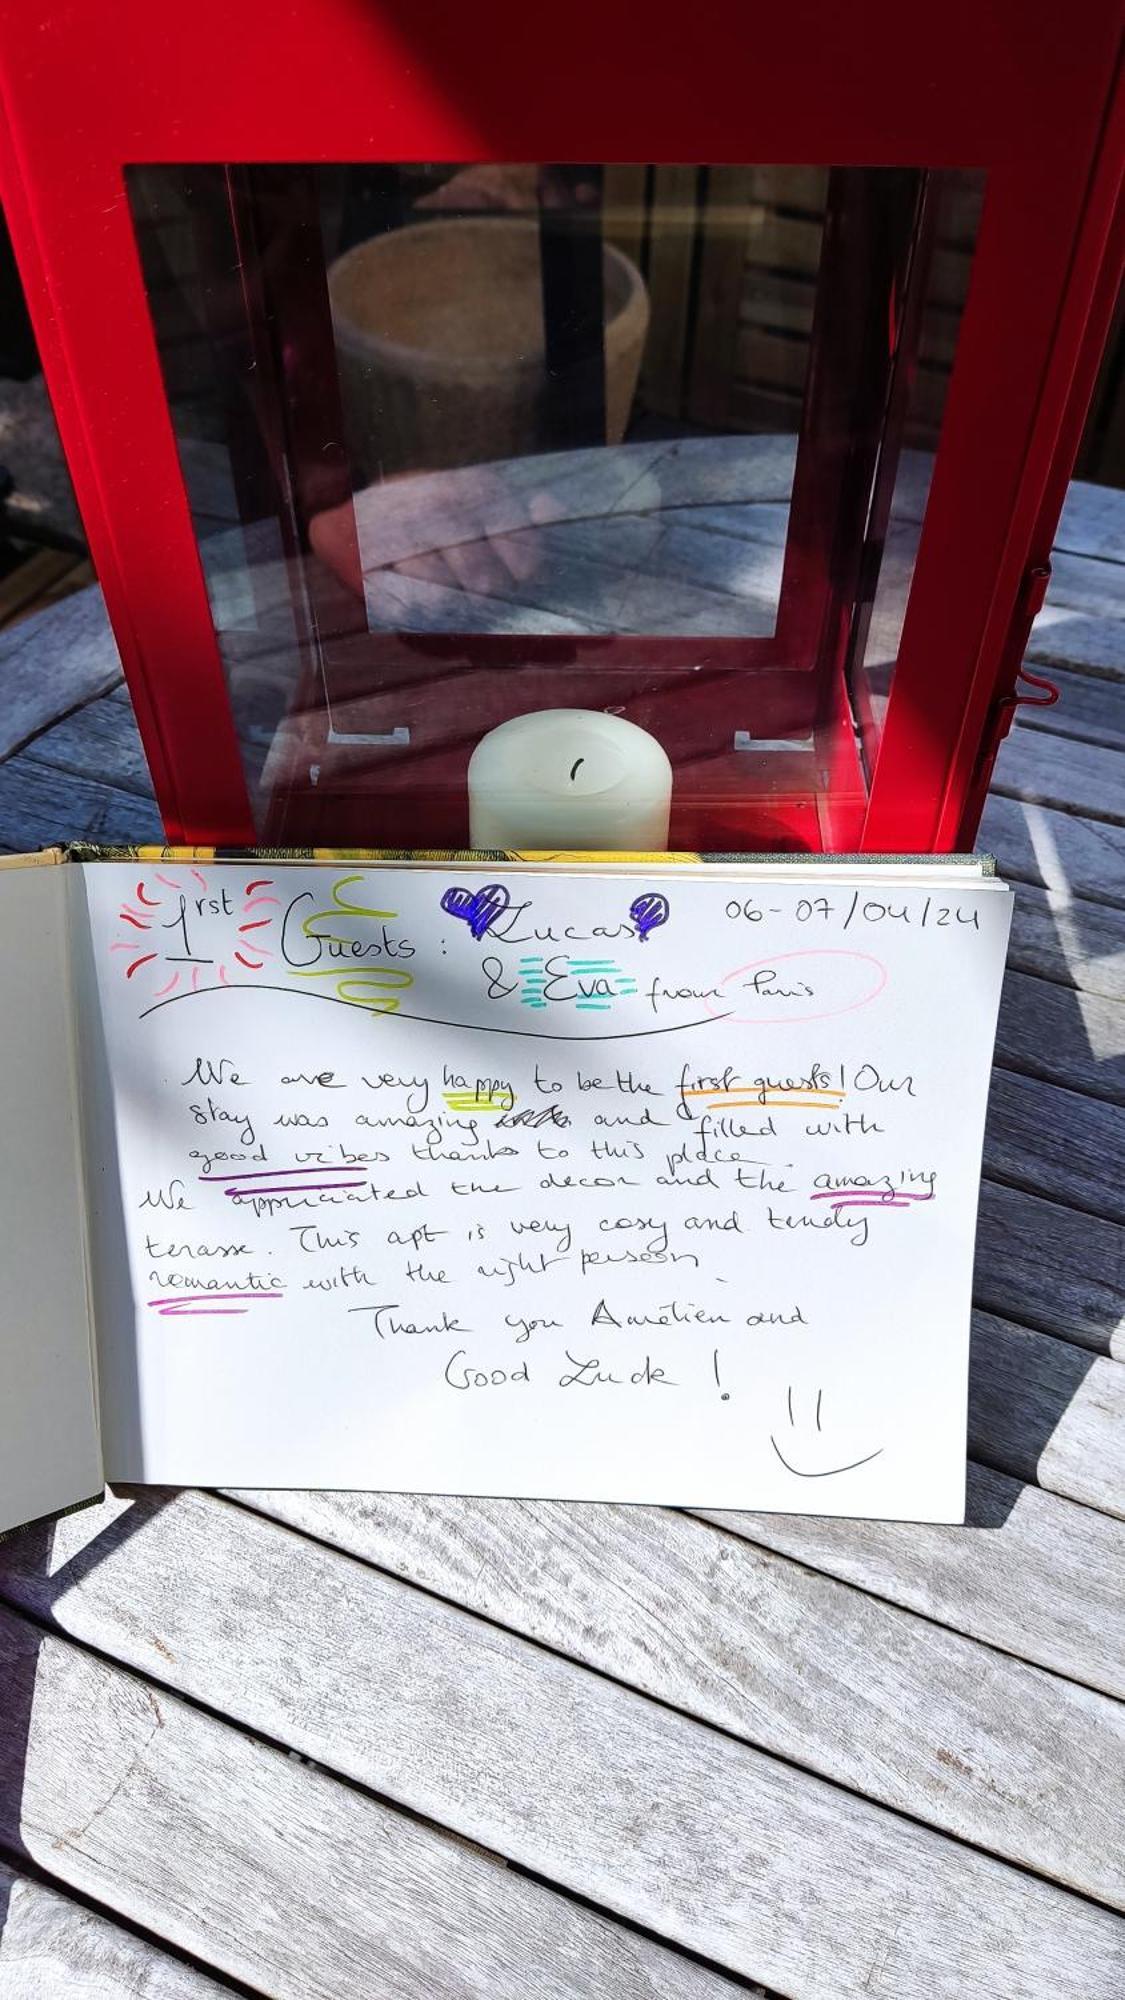 1rst Guests : Lucas 06-07/04/24
& Eva from Paris
We are very happy to be the first guests! Our
stay was amazing and filled with
good vibes thanks to this place.
We appriciated the decor and the amazing
terasse. This apt is very cosy and tendy
romantic with the right person.
Thank you Amélien and
Good Luck !